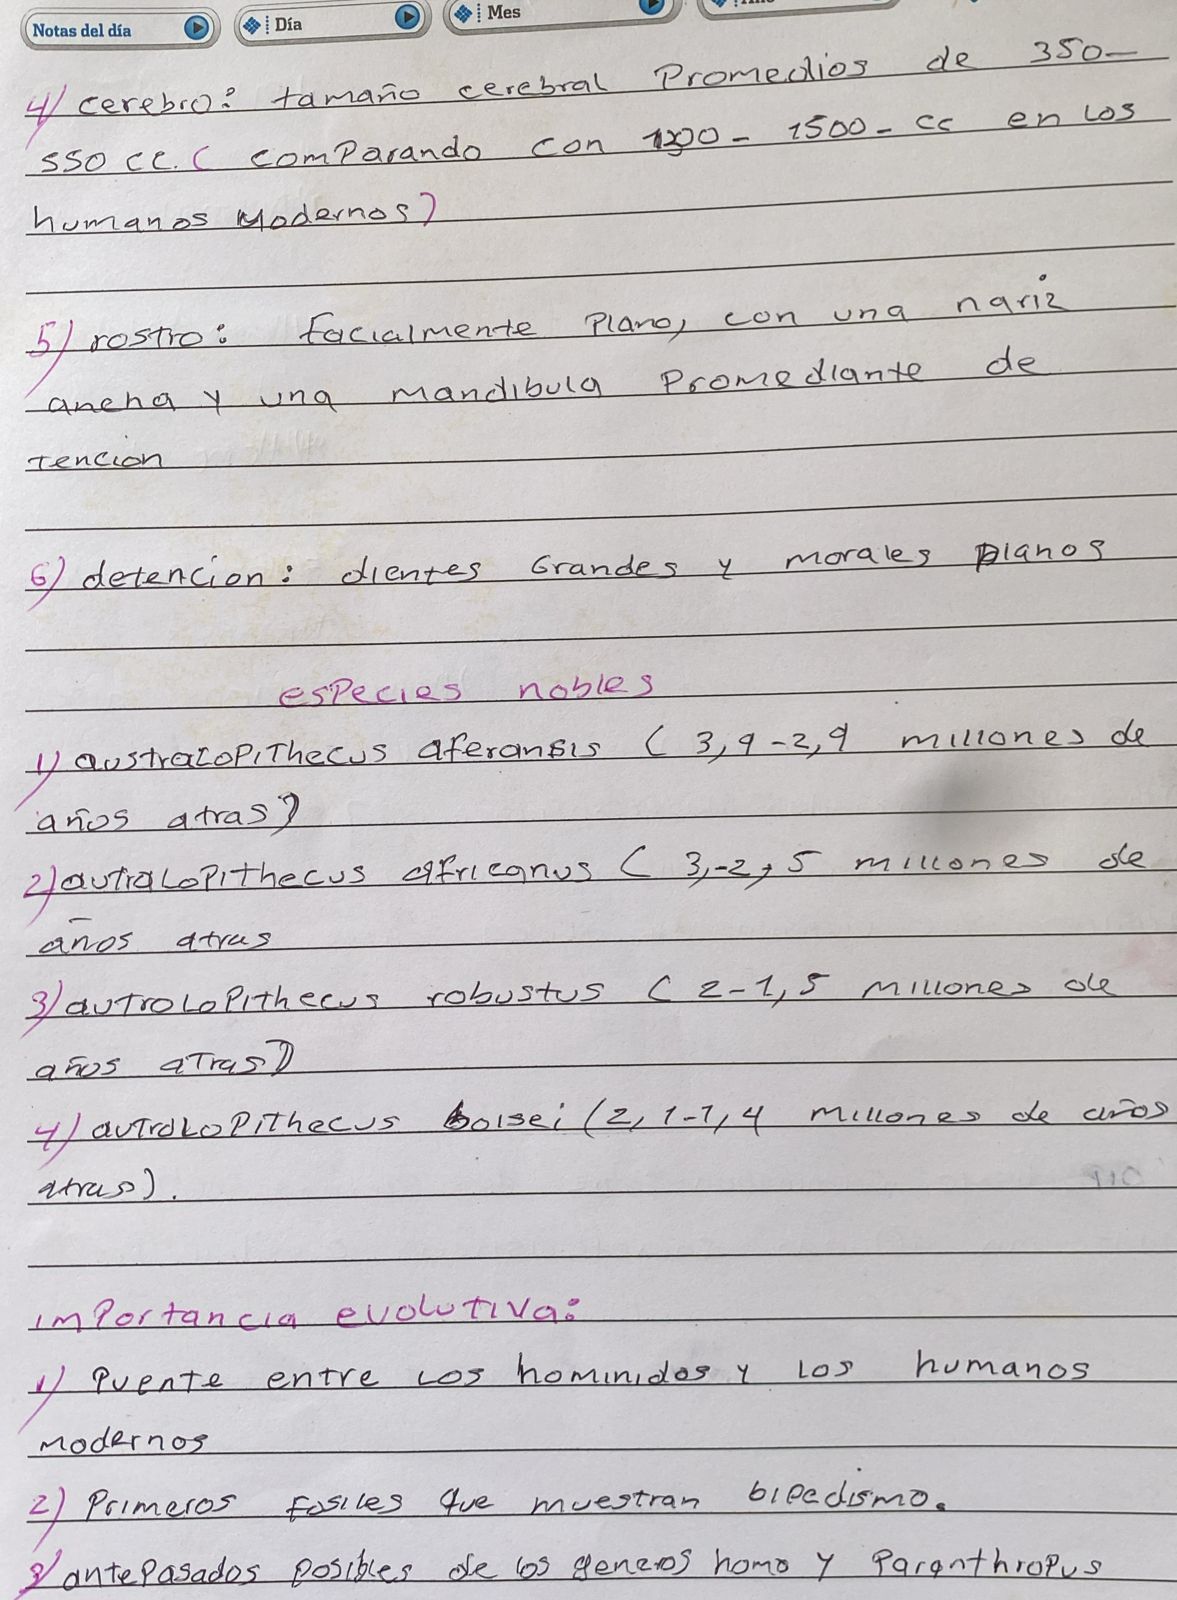 Notas del día
Día
Mes
4) cerebro: tamaño cerebral Promedios de 350-
550 cc. ( comParando con 1200 - 1500 - cc en Los
humanos Modernos)
5) rostro: facialmente Plano, con una nariz
ancha y una mandibula Promediante de
tencion
6) detencion: dientes Grandes y morales planos
esPecies nobles
1) australoPiThecus aferansis ( 3,9 - 2,9 millones de
años atras)
2) autraloPithecus africanus ( 3,-2,5 millones de
años atras
3) autroLoPithecus robustus ( 2-1,5 Millones de
años aTras)
4) autraLoPiThecus boisei (2,1-1,4 Millones de años
atras).
imPortancia evolutiva:
1) Puente entre Los hominidos y Los humanos
Modernos
2) Primeros fosiles que muestran bipedismo.
3) antePasados posibles de los generos homo y ParanthroPus